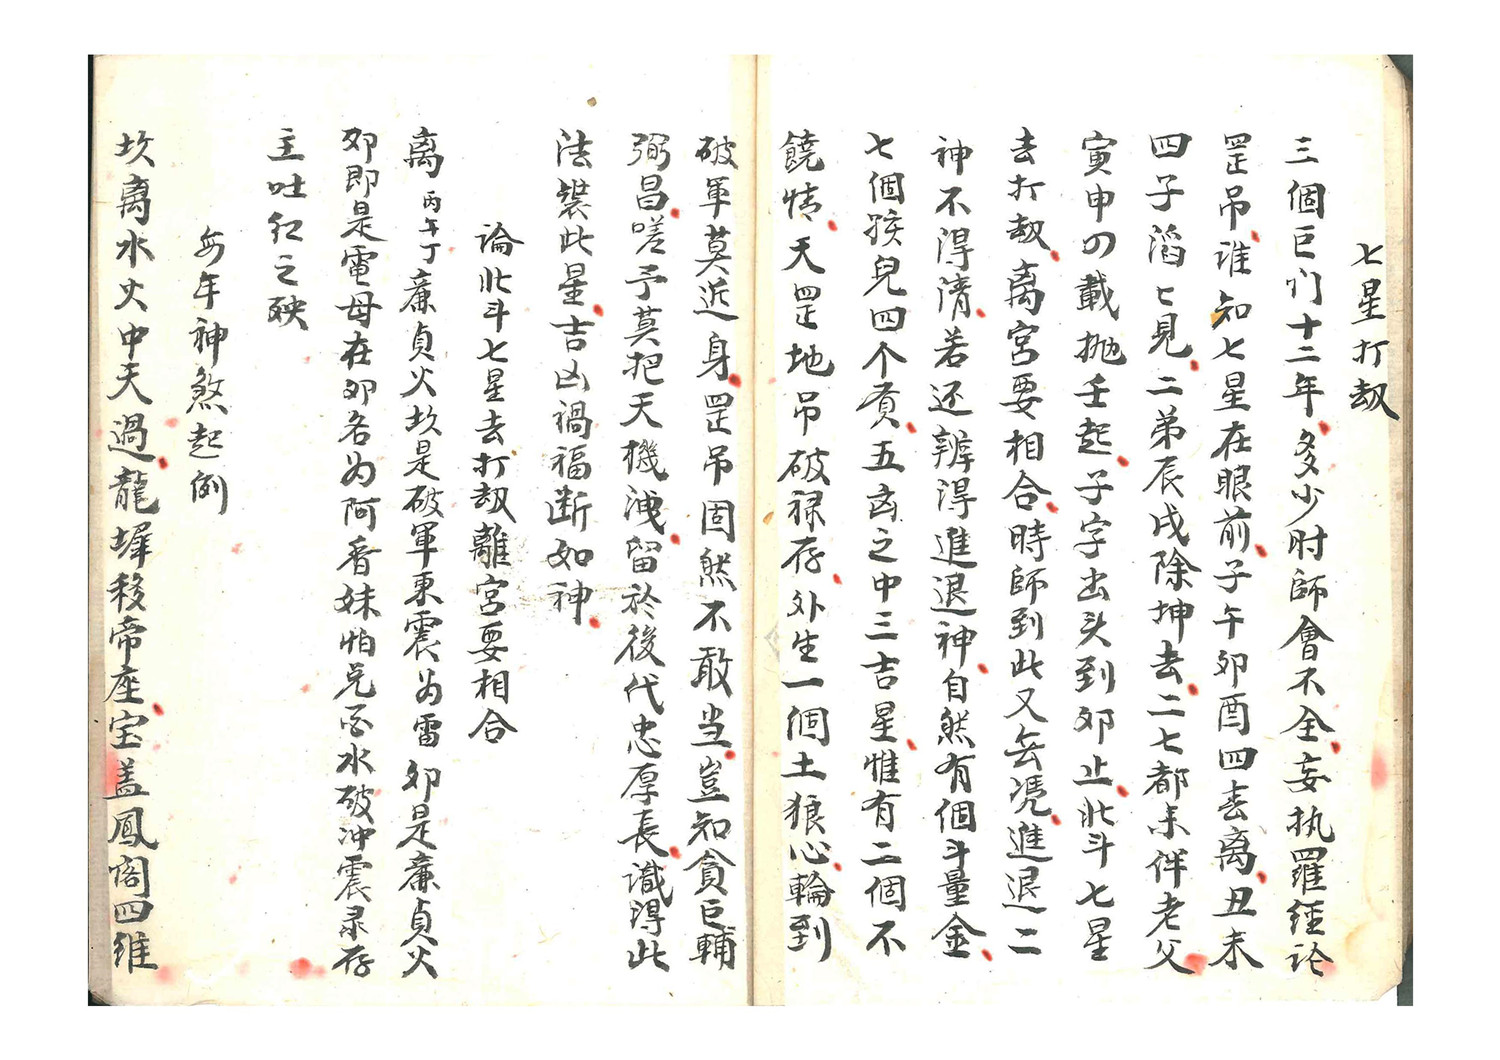 七星打刼
三個巨门十二年多少时師會不全妄执羅經论
罡吊谁知七星在眼前子午卯酉四去离丑未
四子滔七見二弟辰戌除坤去二七都未伴老父
寅申の載抛壬起子字出头到卯止北斗七星
去打刼离宮要相合時師到此又無凴進退二
神不得清若还辨得進退神自然有個斗量金
七個孩兒四个食五凶之中三吉星惟有二個不
饒情天罡地吊破禄存外生一個土狼心輪到
破軍莫近身罡吊固然不敢当豈知貪巨輔
弼昌嗟予莫把天機洩留於後代忠厚長識得此
法裝此星吉凶禍福断如神
論北斗七星去打刼離宮要相合
离丙午丁廉貞火坎是破軍東震为雷卯是廉貞火
卯即是電母在卯名为阿香妹怕兑酉水破冲震录存
主吐红之殃
每年神煞起例
坎离水火中天過龍墀移帝座宝盖鳳阁四维